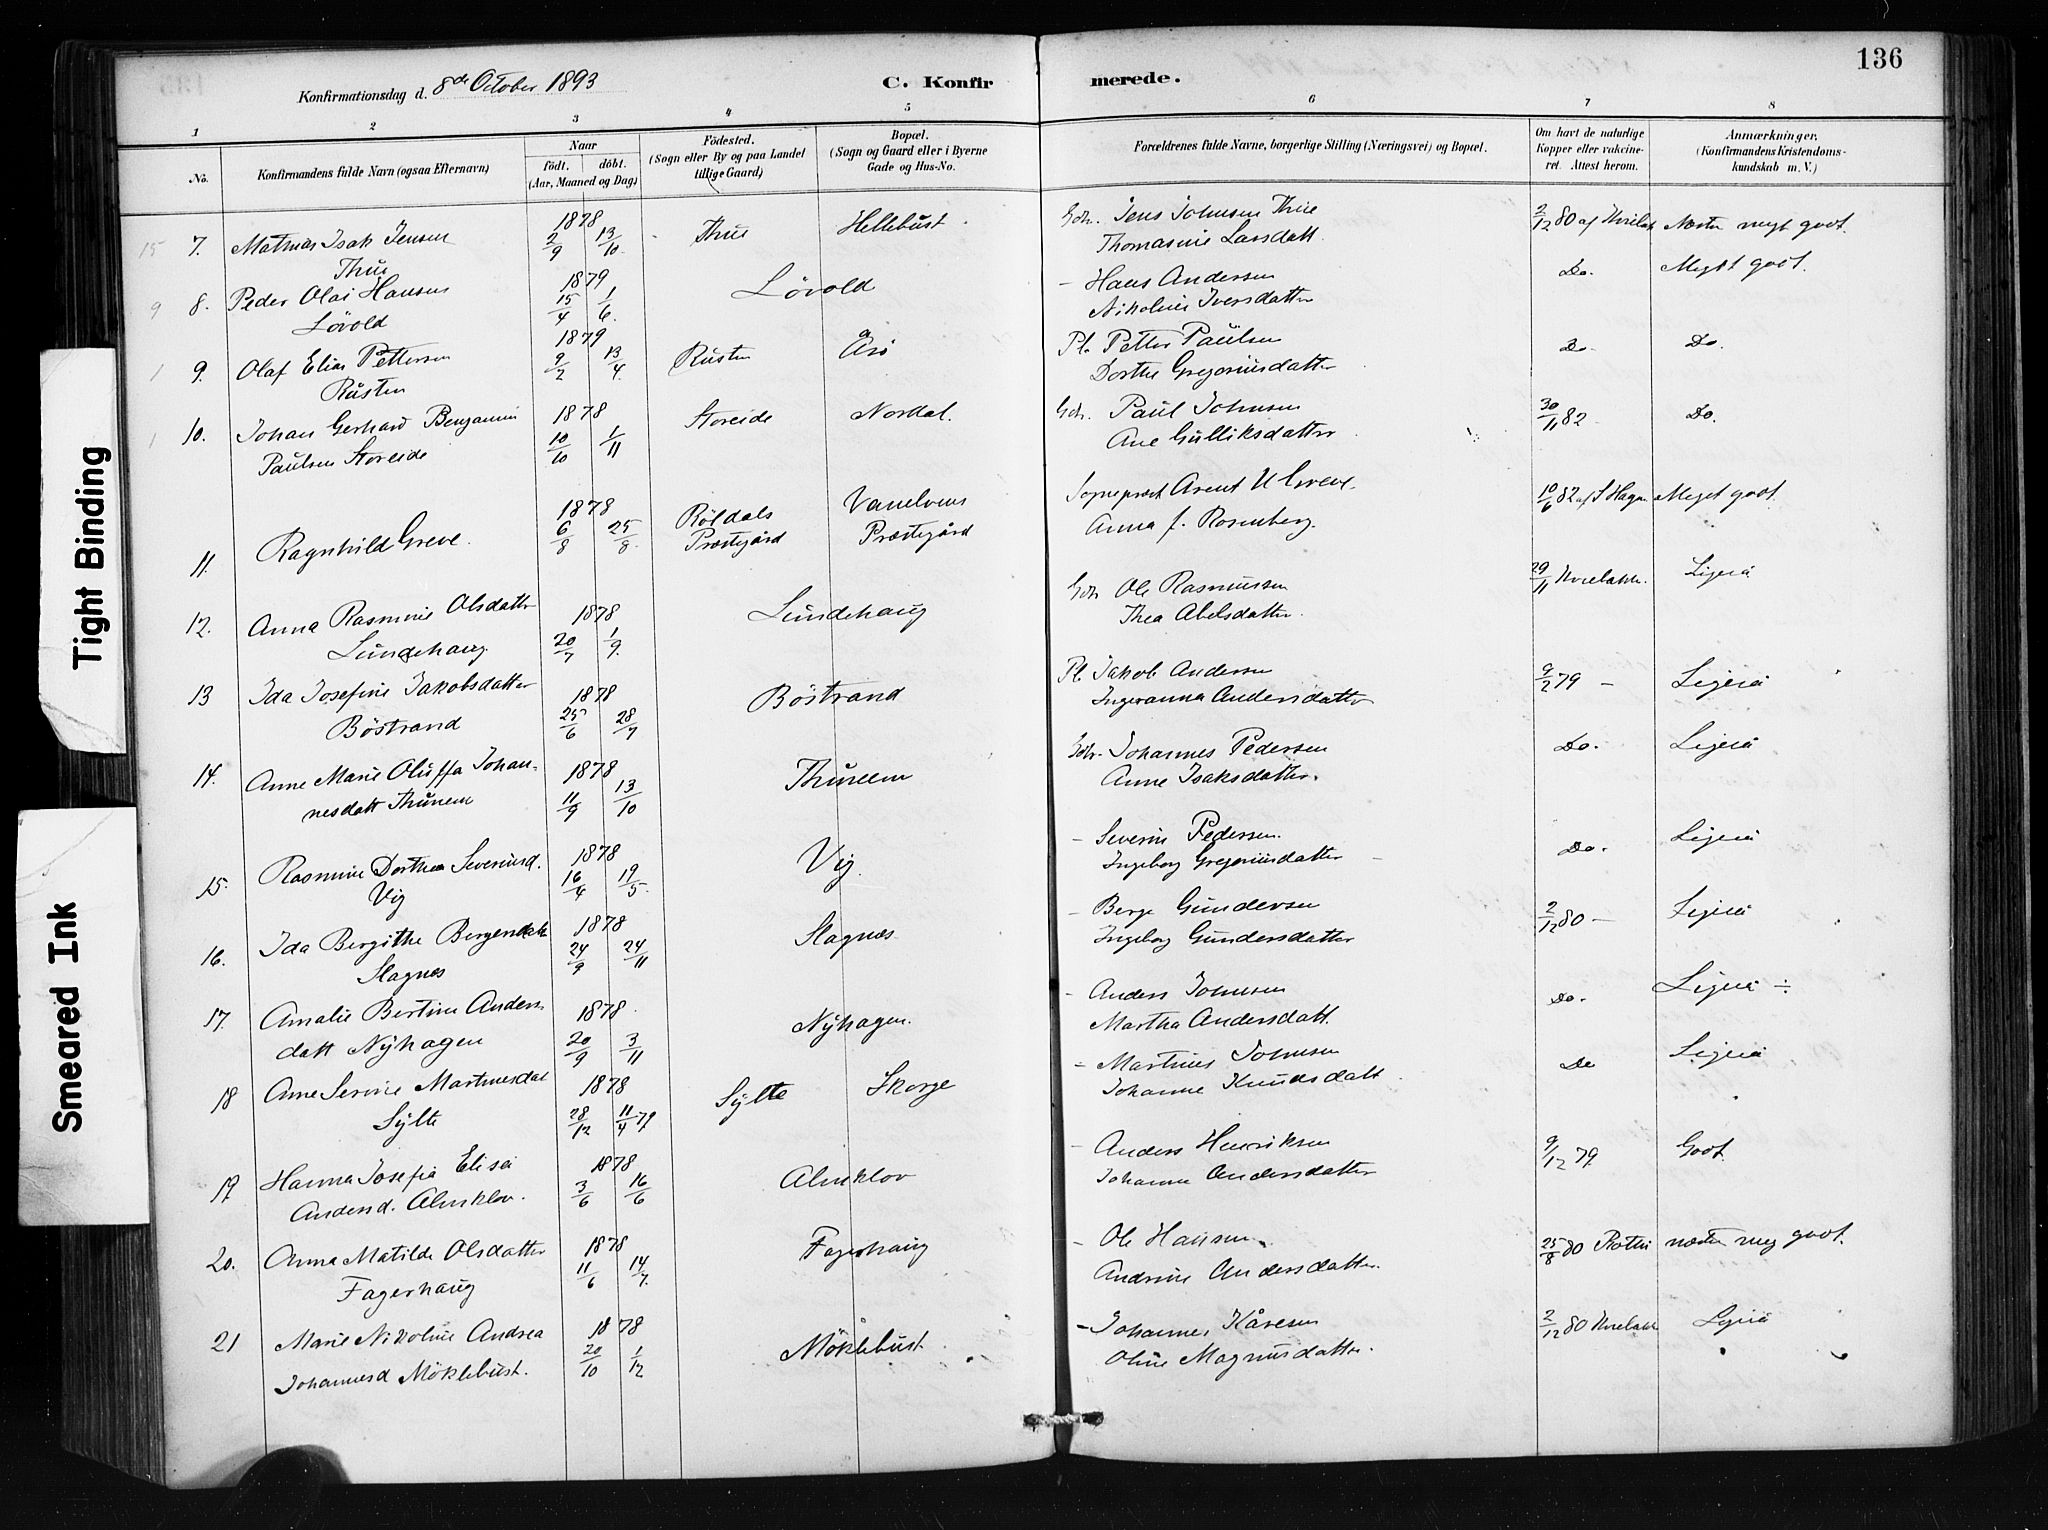 136
Konfirmationsdag d. 8de October 1893
C. Konfirmerede.
1 2 3 4 5 6 7 8
No.
Konfirmandens fulde Navn (ogsaa Efternavn)
Naar
födt. döbt.
(Aar, Maaned og Dag)
Födested.
(Sogn eller By og paa Landet
tillige Gaard)
Bopæl.
(Sogn og Gaard eller i Byerne
Gade og Hus-No.
Forældrenes fulde Navne, borgerlige Stilling (Næringsvei) og Bopæl.
Om havt de naturlige
Kopper eller vakcine-
ret. Attest herom.
Anmærkninger.
(Konfirmandens Kristendoms-
kundskab m. V.)
15 7. Mathias Isak Jensen 1878 2/9 13/10 Thue Hellebust Gdr. Jens Johnsen Thue 2/12 80 af Næsten megt godt.
Thue Thomasine Larsdatt.
9 8. Peder Olai Hansen 1879 15/4 1/6. Lövold - Hans Andersen Do. Meget godt.
Lövold Nikoline Iversdatter
1 9. Olaf Elias Pettersen 1879 9/2 13/4. Rusten Åsö Pl. Petter Paulsen Do. Do.
Rusten Dorthe Gregoriusdatter
1 10. Johan Gerhard Benjamin 1878 10/10 1/11 Storeide Nordal. Gdr. Paul Johnsen 30/11 82 Do.
Paulsen Storeide Ane Gulliksdatter
11. Ragnhild Greve. 1878 6/8 25/8. Röldals Vanelvens Sogneprest Arent U Greve. 10/6 82 af S Hagen Meget godt.
Præstegård Præstegård Anna f. Rosenberg.
12. Anna Rasmine Olsdatter 1878 20/7 1/9. Lundehaug Gdr Ole Rasmussen 29/11 Ligeså
Lundehaug Thea Abelsdatter.
13 Ida Josefine Jakobsdatter 1878 25/6 28/7 Böstrand Pl. Jakob Andersen 9/2 79 - Ligeså
Böstrand Ingeranna Andersdatter
14. Anne Marie Oluffa Johan- 1878 11/9 13/10 Thuneem Gdr. Johannes Pedersen Do. Ligeså
nesdatt Thunem Anne Isaksdatter.
15. Rasmine Dorthea Severinsd. 1878 16/4 19/5. Vig. - Severin Pedersen. Do. Ligeså
Vig Ingeborg Gregoriusdatter -
16. Ida Bergithe Bergersdatt 1878 24/9 24/11 Slagnæs - Berge Gundersen 2/12 80 - Ligeså
Slagnæs Ingeborg Gundersdatter
17. Amalie Bertine Anders 1878. 20/9 3/11 Nyhagen. - Anders Johnsen Do. Ligeså ÷
datt Nyhagen Martha Andersdatt.
18 Ane Serine Martinusdat 1878 28/12 11/4 79 Sylte Skorge - Martinus Johnsen Do Ligeså
Sylte Johanne Knudsdatt.
19 Hanna Josefia Elisa 1878 3/6 16/6 Almklov - Anders Henriksen 9/12 79 Godt
Andersd. Almklov. Johanne Andersdatter
20. Anna Matilde Olsdatter 1878 11/6 14/7. Fagerhaug - Ole Hansen. 25/8 80 næsten meg godt.
Fagerhaug Andrine Andersdatter.
21 Marie Nikoline Andrea 1878 20/10 1/12 Möklebust - Johannes Kåresen 2/12 80 Ligeså
Johannesd Möklebust. Oline Magnusdatter.
Tight Binding
Smeared Ink